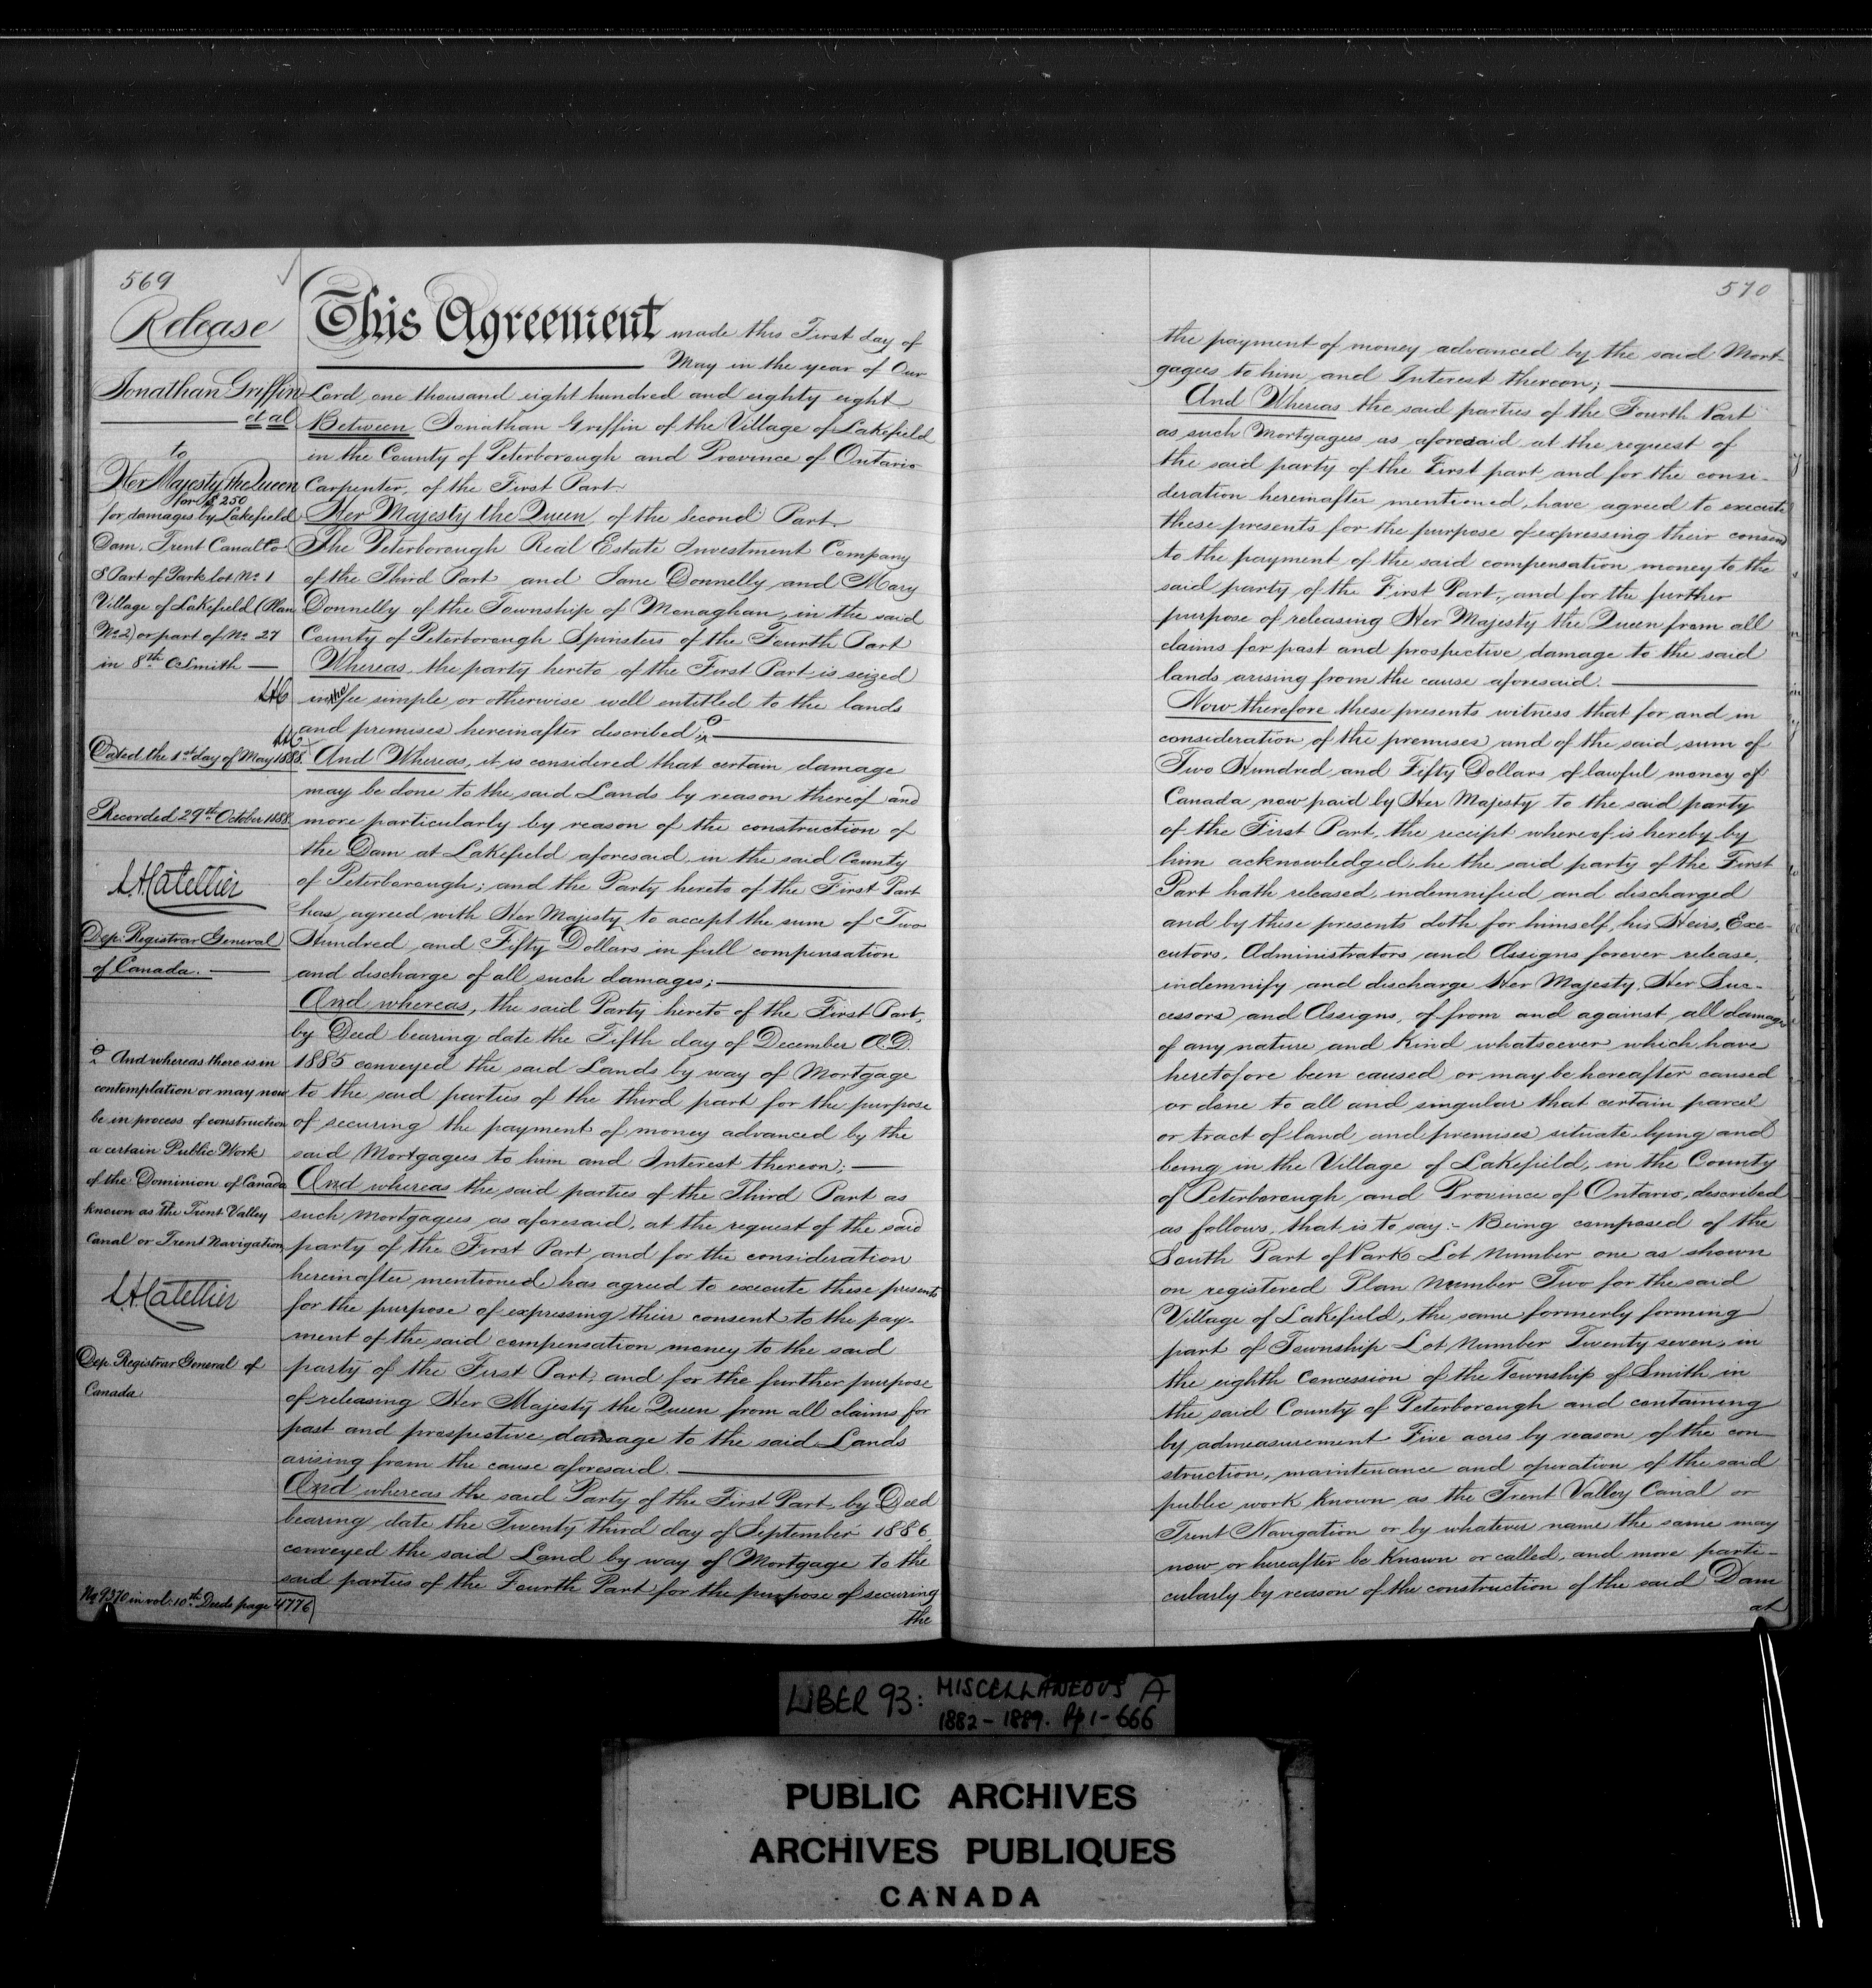 569
Release
Jonathan Griffin
et al
to
Her Majesty the Queen
for $250
for damages by Lakefield
Dam, Trent Canal Co
S Part of Park lot No. 1
Village of Lakefield (Plan
No. 2) or part of No. 27
in 8th C. Smith
LAC
LAC
Dated the 1st day of May 1888.
Recorded 29th October 1888
L.A. Catellier
Dep. Registrar General
of Canada.
And whereas there is in
contemplation or may now
be in process of construction
a certain Public Work
of the Dominion of Canada
known as the Trent Valley
Canal or Trent Navigation
L.A. Catellier
Dep. Registrar General of
Canada
No 9370 in vol: 10th Deeds page 4776
This Agreement made this First day of
May in the year of Our
Lord one thousand eight hundred and eighty eight
Between Jonathan Griffin of the Village of Lakefield
in the County of Peterborough and Province of Ontario
Carpenter, of the First Part.
Her Majesty the Queen, of the Second Part.
The Peterborough Real Estate Investment Company
of the Third Part and Jane Donnelly and Mary
Donnelly of the Township of Monaghan, in the said
County of Peterborough Spinsters of the Fourth Part
Whereas, the party hereto of the First Part is seized
in the fee simple or otherwise well entitled to the lands
and premises hereinafter described;
And Whereas, it is considered that certain damage
may be done to the said Lands by reason thereof and
more particularly by reason of the construction of
the Dam at Lakefield aforesaid in the said County
of Peterborough; and the Party hereto of the First Part
has agreed with Her Majesty to accept the sum of Two
Hundred and Fifty Dollars in full compensation
and discharge of all such damages;
And whereas, the said Party hereto of the First Part,
by Deed bearing date the Fifth day of December A.D.
1885 conveyed the said Lands by way of Mortgage
to the said parties of the third part for the purpose
of securing the payment of money advanced by the
said Mortgagees to him and Interest thereon;
And whereas the said parties of the Third Part as
such Mortgagees as aforesaid, at the request of the said
party of the First Part and for the consideration
hereinafter mentioned has agreed to execute these presents
for the purpose of expressing their consent to the pay-
ment of the said compensation money to the said
party of the First Part, and for the further purpose
of releasing Her Majesty the Queen from all claims for
past and prospective damage to the said Lands
arising from the cause aforesaid.
And whereas the said Party of the First Part, by Deed
bearing date the Twenty third day of September 1886
conveyed the said Land by way of Mortgage to the
said parties of the Fourth Part for the purpose of securing
the
570
the payment of money advanced by the said Mort-
gagees to him and Interest thereon;
And Whereas the said parties of the Fourth Part
as such Mortgagees as aforesaid at the request of
the said party of the First part and for the consi-
deration hereinafter mentioned, have agreed to execute
these presents for the purpose of expressing their consent
to the payment of the said compensation money to the
said party of the First Part, and for the further
purpose of releasing Her Majesty the Queen from all
claims for past and prospective damage to the said
lands arising from the cause aforesaid.
Now therefore these presents witness that for and in
consideration of the premises and of the said sum of
Two Hundred and Fifty Dollars of lawful money of
Canada now paid by Her Majesty to the said party
of the First Part, the receipt whereof is hereby by
him acknowledged, he the said party of the First
Part hath released, indemnified and discharged
and by these presents doth for himself, his Heirs, Exe-
cutors, Administrators and Assigns forever release,
indemnify and discharge Her Majesty, Her Suc-
cessors and Assigns, of from and against all damages
of any nature and kind whatsoever which have
heretofore been caused or may be hereafter caused
or done to all and singular that certain parcel
or tract of land and premises situate lying and
being in the Village of Lakefield, in the County
of Peterborough and Province of Ontario, described
as follows, that is to say:- Being composed of the
South Part of Park Lot Number one as shown
on registered Plan Number Two for the said
Village of Lakefield, the same formerly forming
part of Township Lot Number Twenty seven, in
the eighth Concession of the Township of Smith in
the said County of Peterborough and containing
by admeasurement Five acres by reason of the con-
struction, maintenance and operation of the said
public work known as the Trent Valley Canal or
Trent Navigation or by whatever name the same may
now or hereafter be known or called, and more parti-
cularly by reason of the construction of the said Dam
at
LIBER 93: MISCELLANEOUS A
1882-1889. Pp 1-666
PUBLIC ARCHIVES
ARCHIVES PUBLIQUES
CANADA